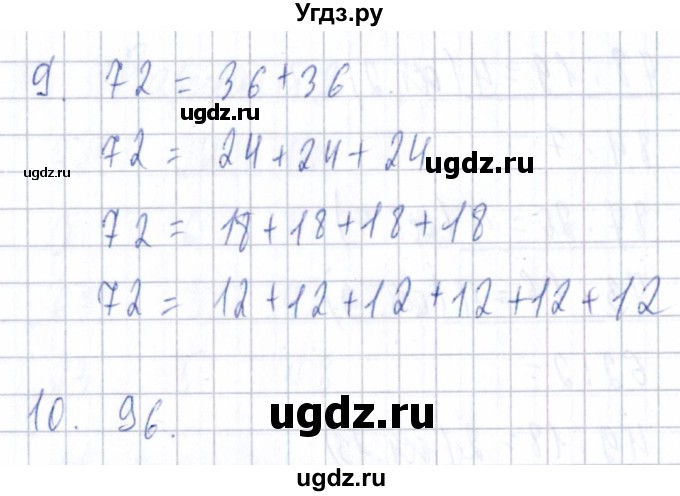 Угдз.ру
9. 72 = 36 + 36
ugdz.ru
72 = 24 + 24 + 24
ugdz.ru
ugdz.ru
72 = 18 + 18 + 18 + 18
72 = 12 + 12 + 12 + 12 + 12 + 12
10. 96.
ugdz.ru
ugdz.ru